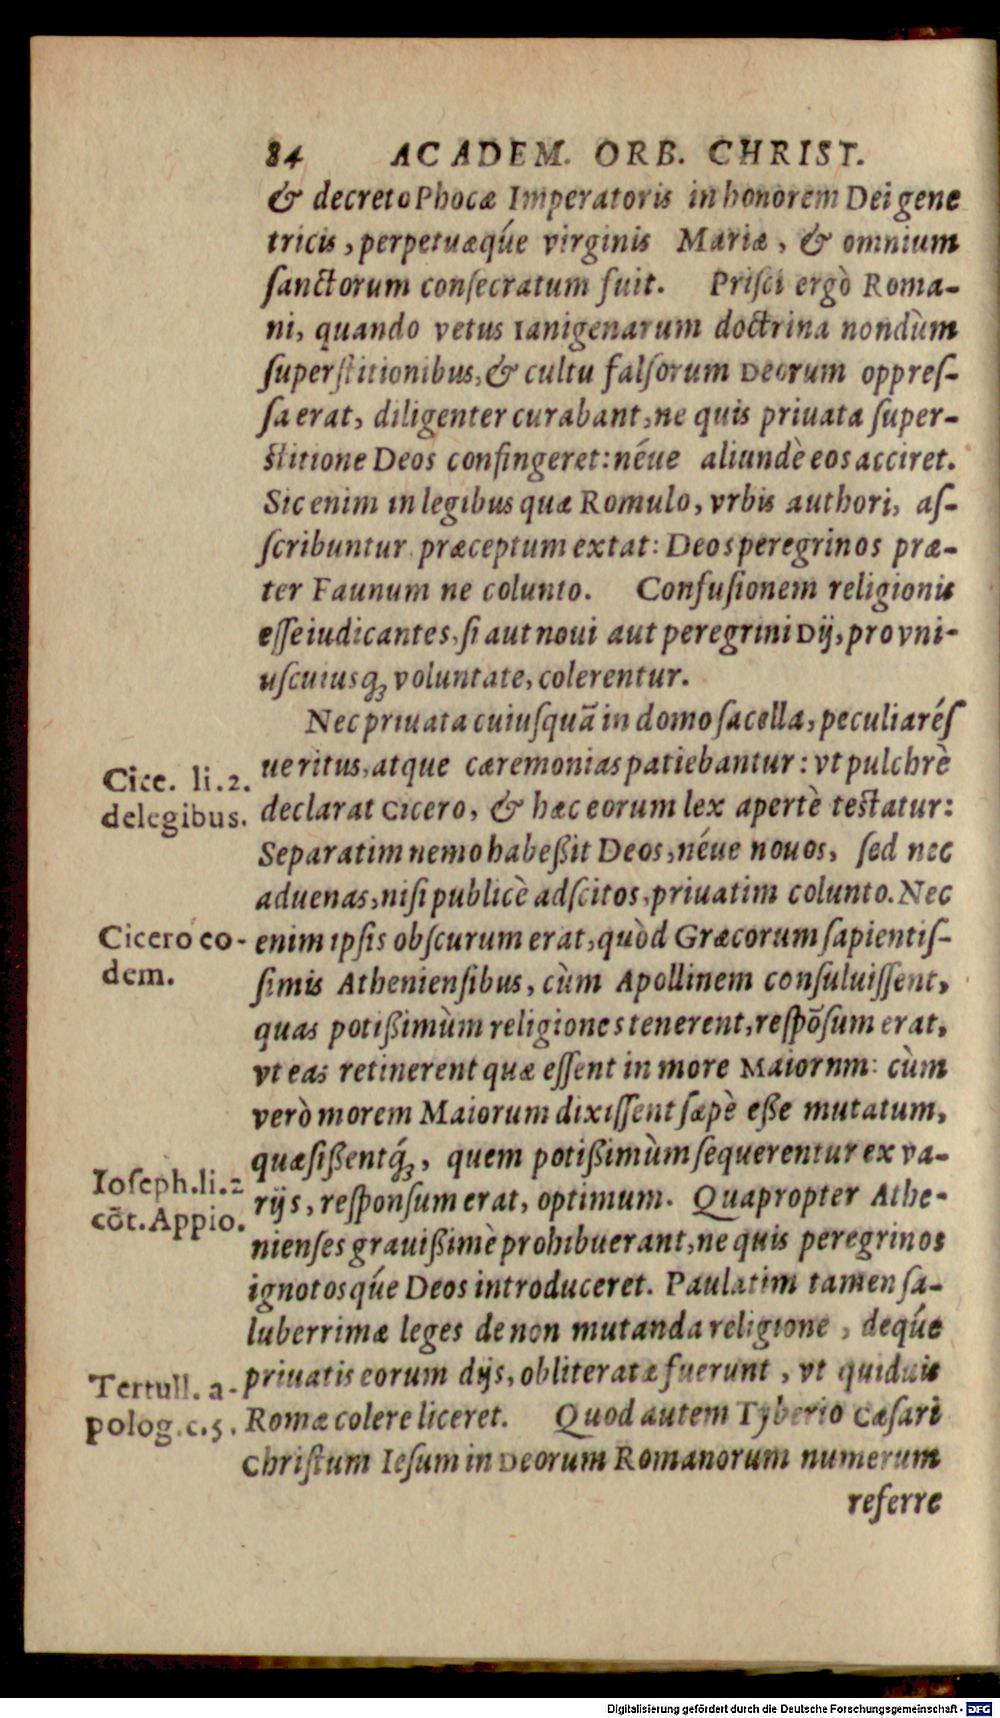 84 ACADEM. ORB. CHRIST.
& decreto Phocæ Imperatoris in honorem Dei gene
tricis, perpetuæq́ue virginis Mariæ, & omnium
ſanctorum conſecratum fuit. Priſci ergò Roma-
ni, quando vetus Ianigenarum doctrina nondùm
ſuperſtitionibus, & cultu falſorum Deorum oppreſ-
ſa erat, diligenter curabant, ne quis priuata ſuper-
ſtitione Deos confingeret: néue aliundè eos acciret.
Sic enim in legibus quæ Romulo, vrbis authori, aſ-
ſcribuntur præceptum extat: Deos peregrinos præ-
ter Faunum ne colunto. Confuſionem religionis
eſſe iudicantes, ſi aut noui aut peregrini Dij, pro vni-
uſcuiusq; voluntate, colerentur.
Nec priuata cuiuſquã in domo ſacella, peculiaréſ
ue ritus, atque cæremonias patiebantur: vt pulchrè
Cice. li. 2.
delegibus.
declarat Cicero, & hæc eorum lex apertè teſtatur:
Separatim nemo habeßit Deos, néue nouos, ſed nec
aduenas, niſi publicè adſcitos, priuatim colunto. Nec
Cicero eo-
dem.
enim ipſis obſcurum erat, quòd Græcorum ſapientiſ-
ſimis Athenienſibus, cùm Apollinem conſuluiſſent,
quas potißimùm religiones tenerent, reſpõſum erat,
vt eas retinerent quæ eſſent in more Maiornm: cùm
verò morem Maiorum dixiſſent ſæpè eße mutatum,
quæſißentq́;, quem potißimùm ſequerentur ex va-
Ioſeph. li. 2
cõt. Appio.
rijs, reſponſum erat, optimum. Quapropter Athe-
nienſes grauißimè prohibuerant, ne quis peregrinos
ignotosq́ue Deos introduceret. Paulatim tamen ſa-
luberrimæ leges de non mutanda religione, deq́ue
Tertull. a-
polog. c. 5.
priuatis eorum dijs, obliteratæ fuerunt, vt quiduis
Romæ colere liceret. Quod autem Tyberio Cæſari
Chriſtum Ieſum in Deorum Romanorum numerum
referre
Digitalisierung gefördert durch die Deutsche Forschungsgemeinschaft - DFG